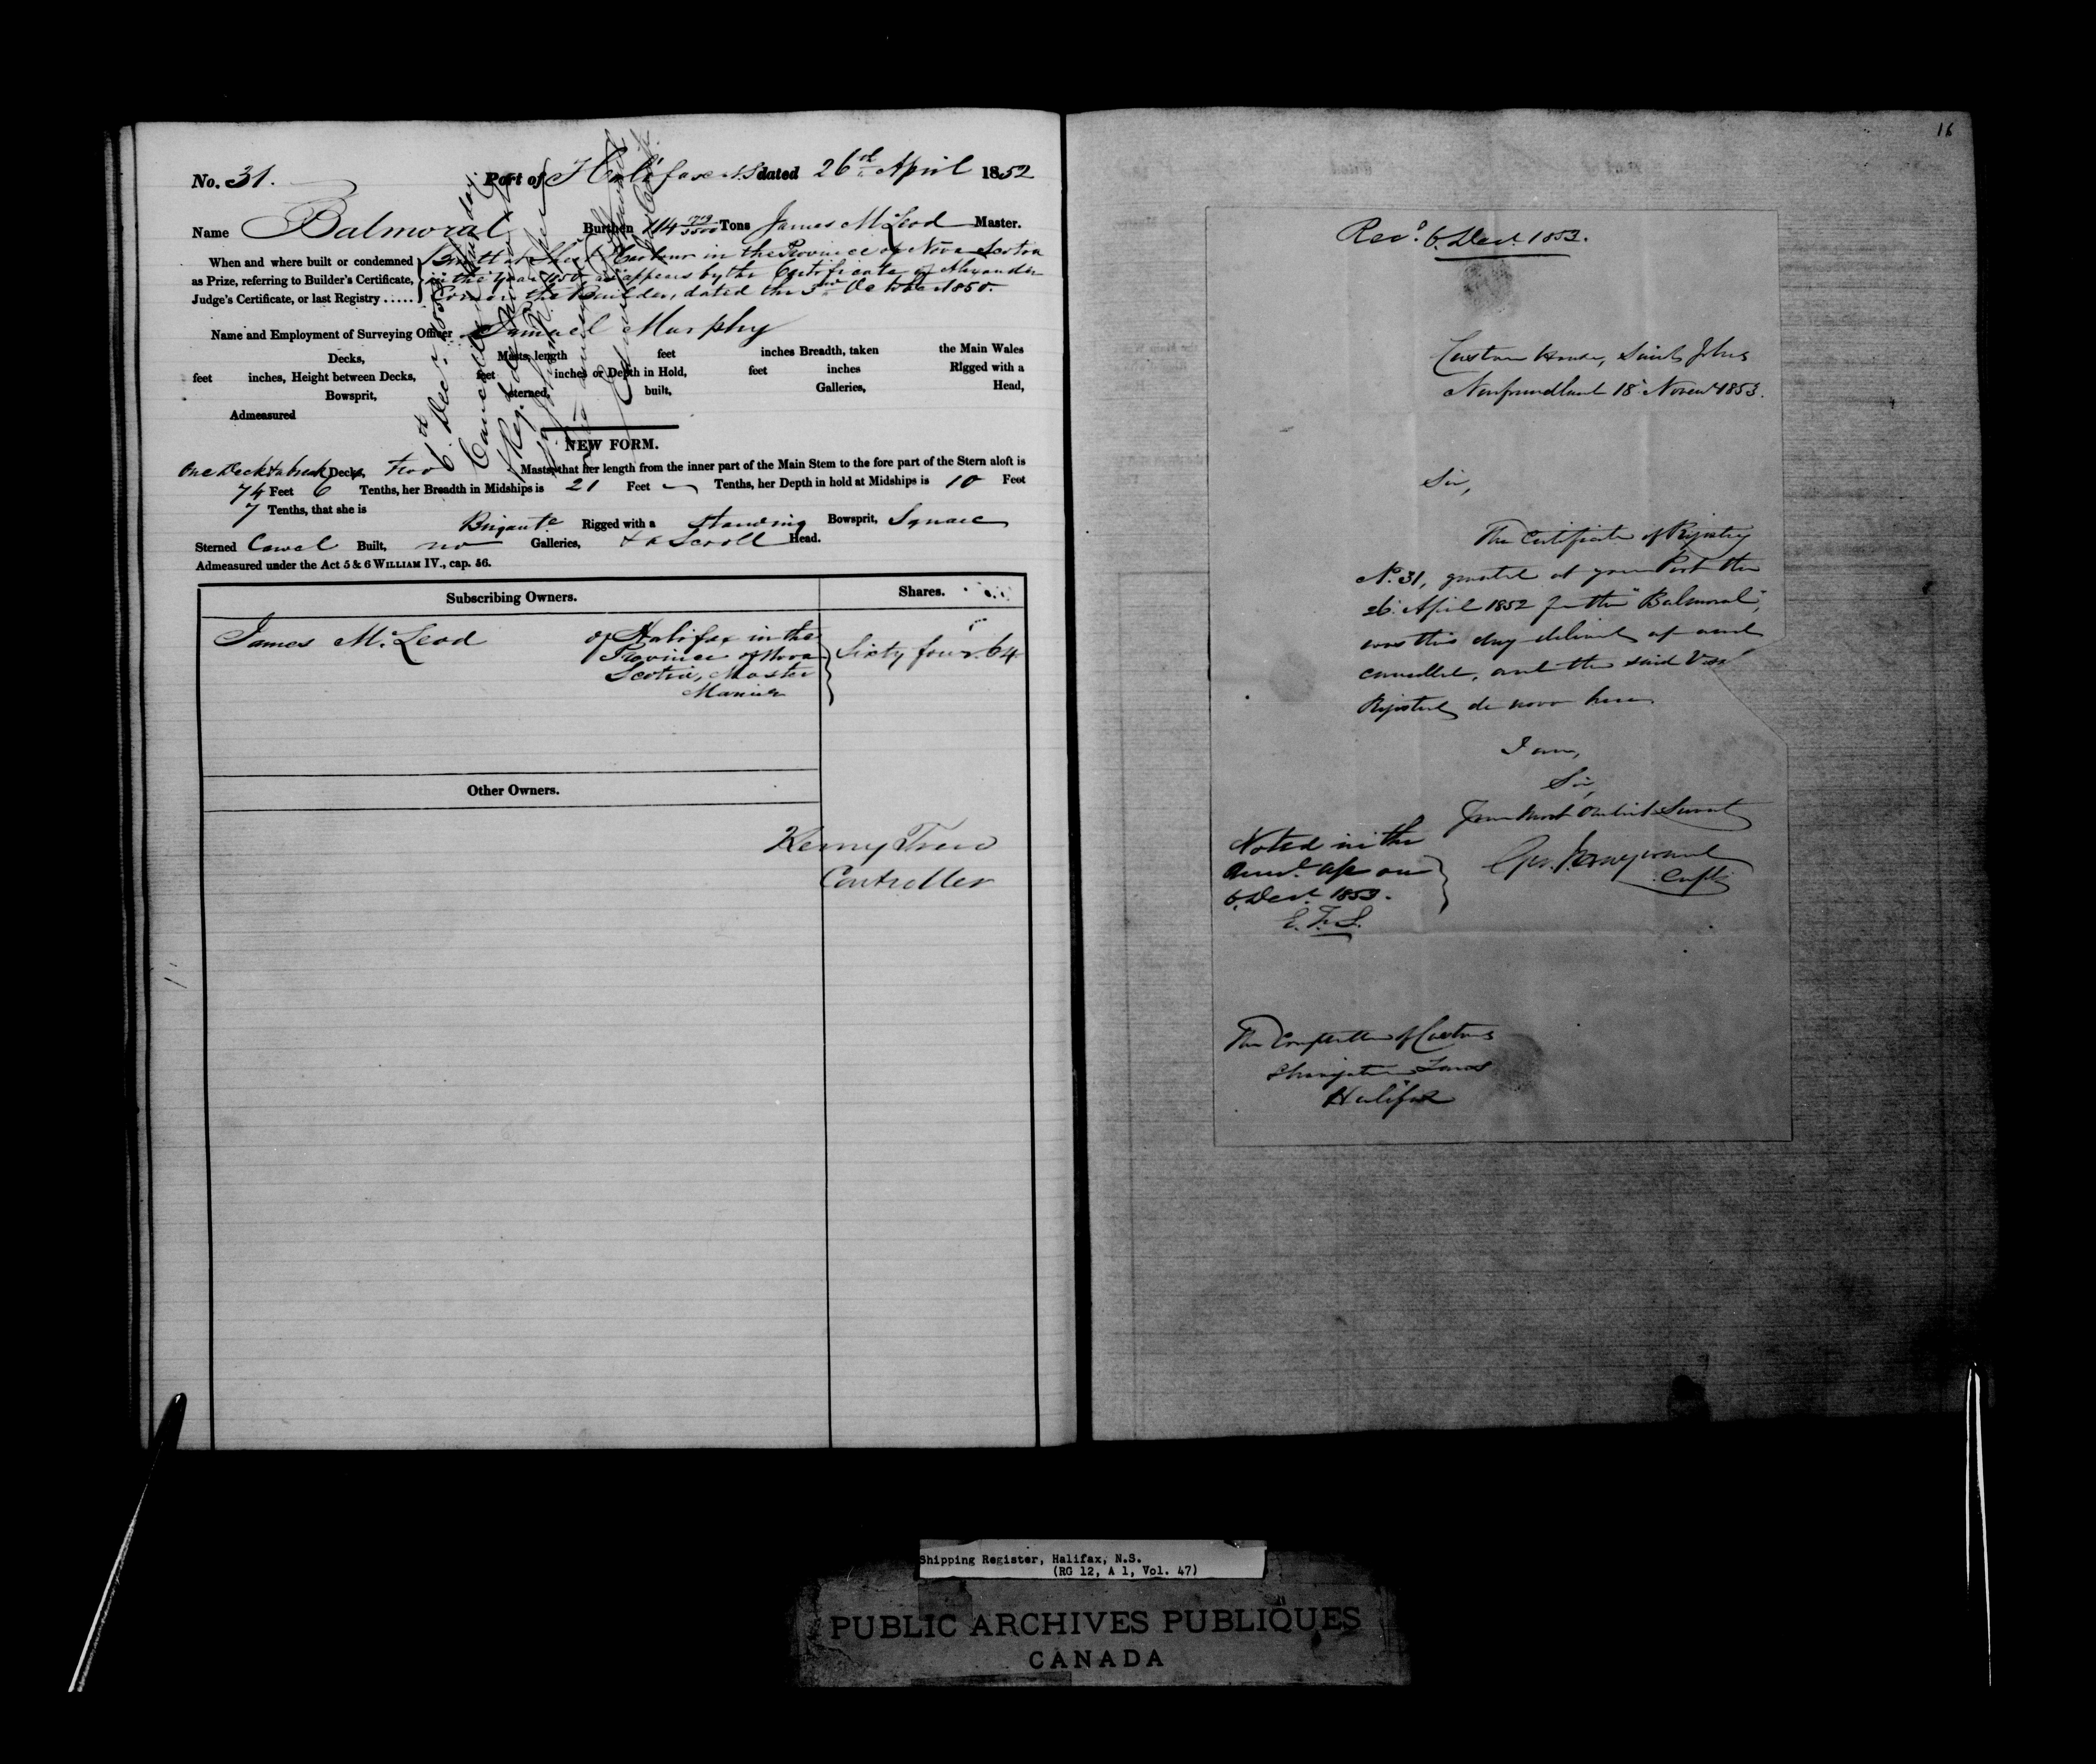 No. 31. Port of Halifax N.S dated 26th April 1852
Name Balmoral Burthen 114 1719/3500 Tons James McLeod Master.
When and where built or condemned
as Prize, referring to Builder's Certificate,
Judge's Certificate, or last Registry .....
Built at Sheet Harbour in the Province of Nova Scotia
in the year 1850 as appears by the Certificate of Alexander
the Builder, dated the 3rd October 1850.
Name and Employment of Surveying Officer Samuel Murphy
Decks, Masts, length feet inches Breadth, taken the Main Wales
feet inches, Height between Decks, feet inches or Depth in Hold, feet inches Rigged with a
Bowsprit, sterned, built, Galleries, Head,
Admeasured
6th Dec. 1853
Cancelled
NEW FORM.
One Deck & a break Decks, two Masts, that her length from the inner part of the Main Stem to the fore part of the Stern aloft is
74 Feet 6 Tenths, her Breadth in Midships is 21 Feet Tenths, her Depth in hold at Midships is 10 Feet
7 Tenths, that she is Brigante Rigged with a standing Bowsprit, Square
Sterned Carvel Built, no Galleries, & a Scroll Head.
Admeasured under the Act 5 & 6 WILLIAM IV., cap. 56.
Subscribing Owners. Shares.
James McLeod of Halifax in the
Province of Nova
Scotia, Master
Mariner
Sixty four. 64
Other Owners.
Controller
16
Recd. 6. Decr. 1853.
Custom House, Saint Johns
Newfoundland 18 Novemr 1853.
Sir,
The Certificate of Registry
No. 31, granted at your Port the
26. April 1852 for the "Balmoral",
was this day delivered up and
cancelled, and the said Vessl
Registered de novo here
I am,
Sir,
Your most Obedient Servant
Noted in the
on
6. Decr. 1853.
E. F. S.
The Comptroller of Customs
Navigation Laws
Halifax
Shipping Register, Halifax, N.S.
(RG 12, A 1, Vol. 47)
PUBLIC ARCHIVES PUBLIQUES
CANADA